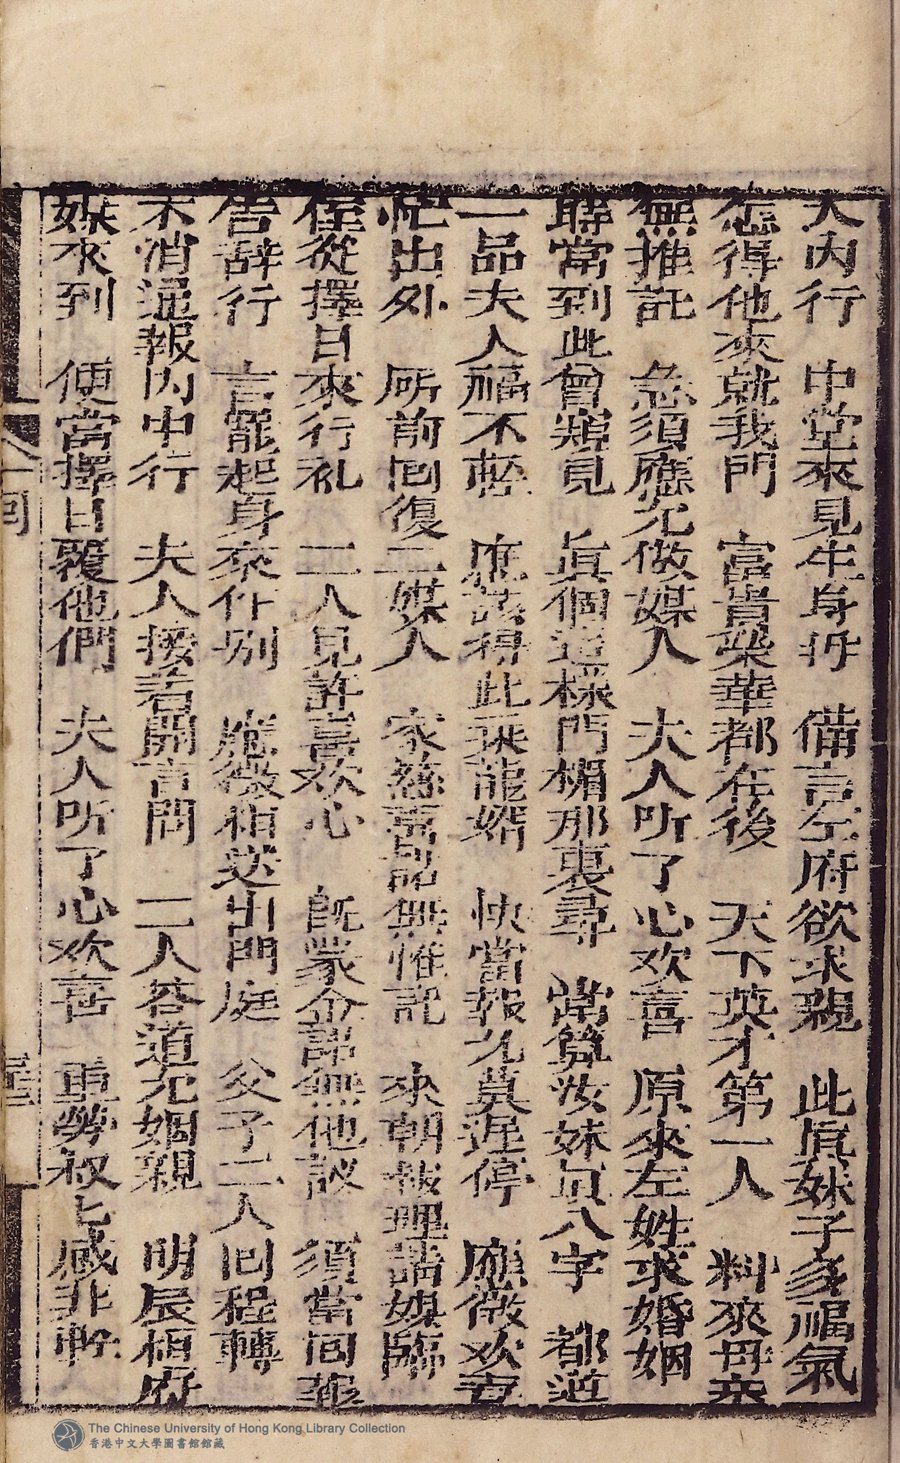 入内行　中堂來見生身母　備言左府欲求親　此眞妹子多福氣
怎得他來就我門　富貴榮華都在後　天下英才第一人　料來母亲
無推託　急須應允做媒人　夫人听了心欢喜　原來左姓求婚姻
時常到此曾覩見　眞個這樣門楣那裏尋　常算汝妹貞八字　都道
一品夫人福不輕　應該得此乘龍婿　快當報允莫遅停　應徵欢喜
忙出外　所前回復二媒人　家慈喜諾無推託　來朝敬理請媒臨
侄從擇日來行礼　二人見許喜欢心　既蒙金諾無他議　須當回報
告辞行　言罷起身來作別　應徵相送出門庭　父子二人回程轉
不消通報内中行　夫人接着開言問　二人答道允姻親　明辰桓府
媒來到　便當擇日覆他們　夫人听了心欢喜　重勞叔七感非軽
十回
The Chinese University of Hong Kong Library Collection
香港中文大學圖書館館藏